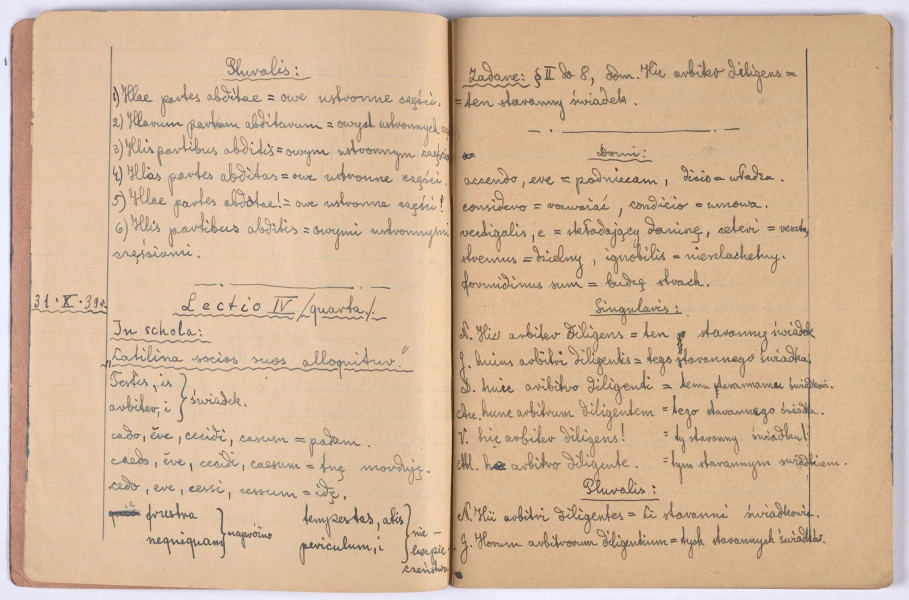 Pluralis:
1) Illae partes abditae = owe ustronne części.
2) Illarum partium abditarum = owych ustronnych
3) Illis partibus abditis = owym ustronnym częścio
4) Illas partes abditas = owe ustronne części.
5) Illae partes abditae! = owe ustronne części!
6) Illis partibus abditis = owymi ustronnymi
częściami.
31.X.39r.
Lectio IV /quarta/:
In schola:
"Catilina socios suos alloquitur."
Testis, is
arbiter, i } świadek.
cado, ĕre, cecidi, casum = padam.
caedo, ĕre, cecidi, caesum = tnę morduję.
cedo, ere, cessi, cessum = idę.
frustra
nequiquam } napróżno
tempestas, atis
periculum, i } nie-
bezpie-
czeństwo
Zadane: § II do 8, odm. Hic arbiter diligens =
= ten staranny świadek.
Domi:
accendo, ere = podniecam, dicio = władza.
considero = rozważać, condicio = umowa.
vectigalis, e = składający daninę, ceteri = reszta,
strenuus = dzielny, ignobilis = nieszlachetny.
formidini sum = budzę strach.
Singularis:
N. Hic arbiter diligens = ten staranny świadek
G. huius arbitri diligentis = tego starannego świadka
D. huic arbitro diligenti = temu starannemu świadkowi.
Acc. hunc arbitrum diligentem = tego starannego świadka.
V. hic arbiter diligens! = ty staranny świadku!
Abl. arbitro diligente. = tym starannym świadkiem.
Pluralis:
N. Hii arbitri diligentes = ci staranni świadkowie.
G. Horum arbitrorum diligentium = tych starannych świadków.